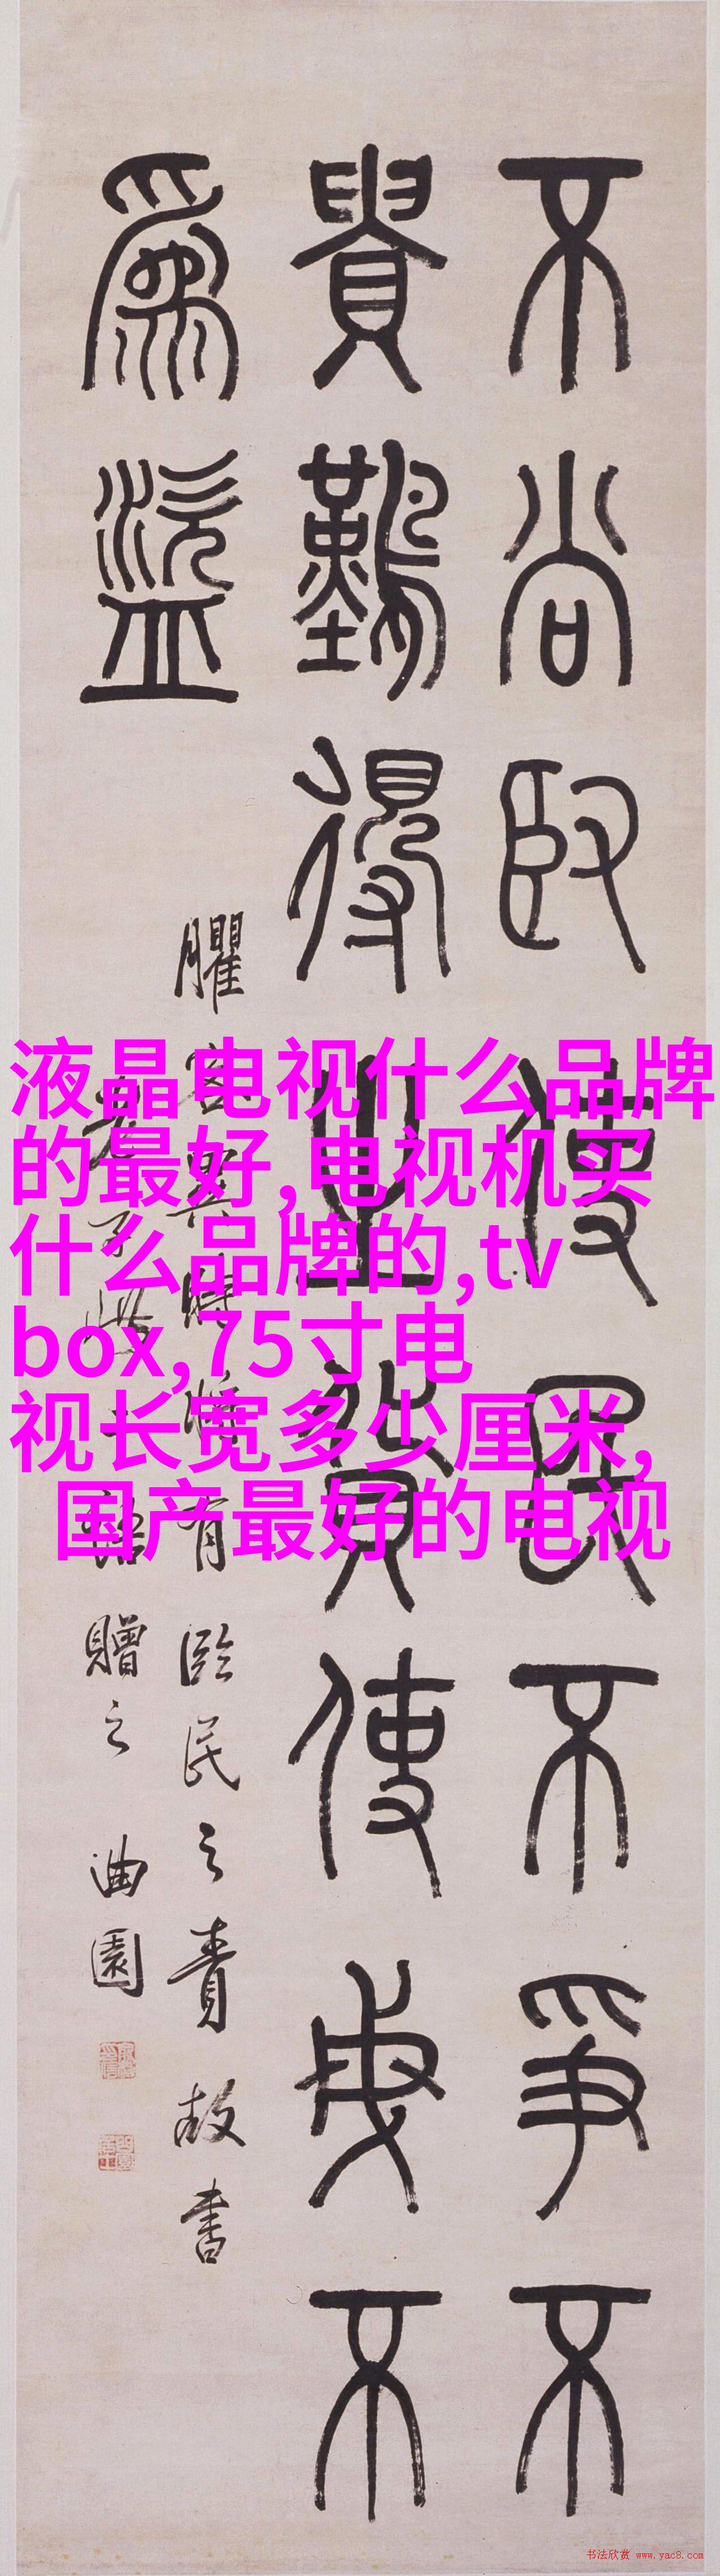 不尚臤使民不爭不
貴難得之貨使民不
為盜
臞客 時將有臨民之責故書
老子此二語贈之 曲園
液晶电视什么品牌
的最好,电视机买
什么品牌的,tv
box,75寸电
视长宽多少厘米,
国产最好的电视
书法欣赏 www.yac8.com